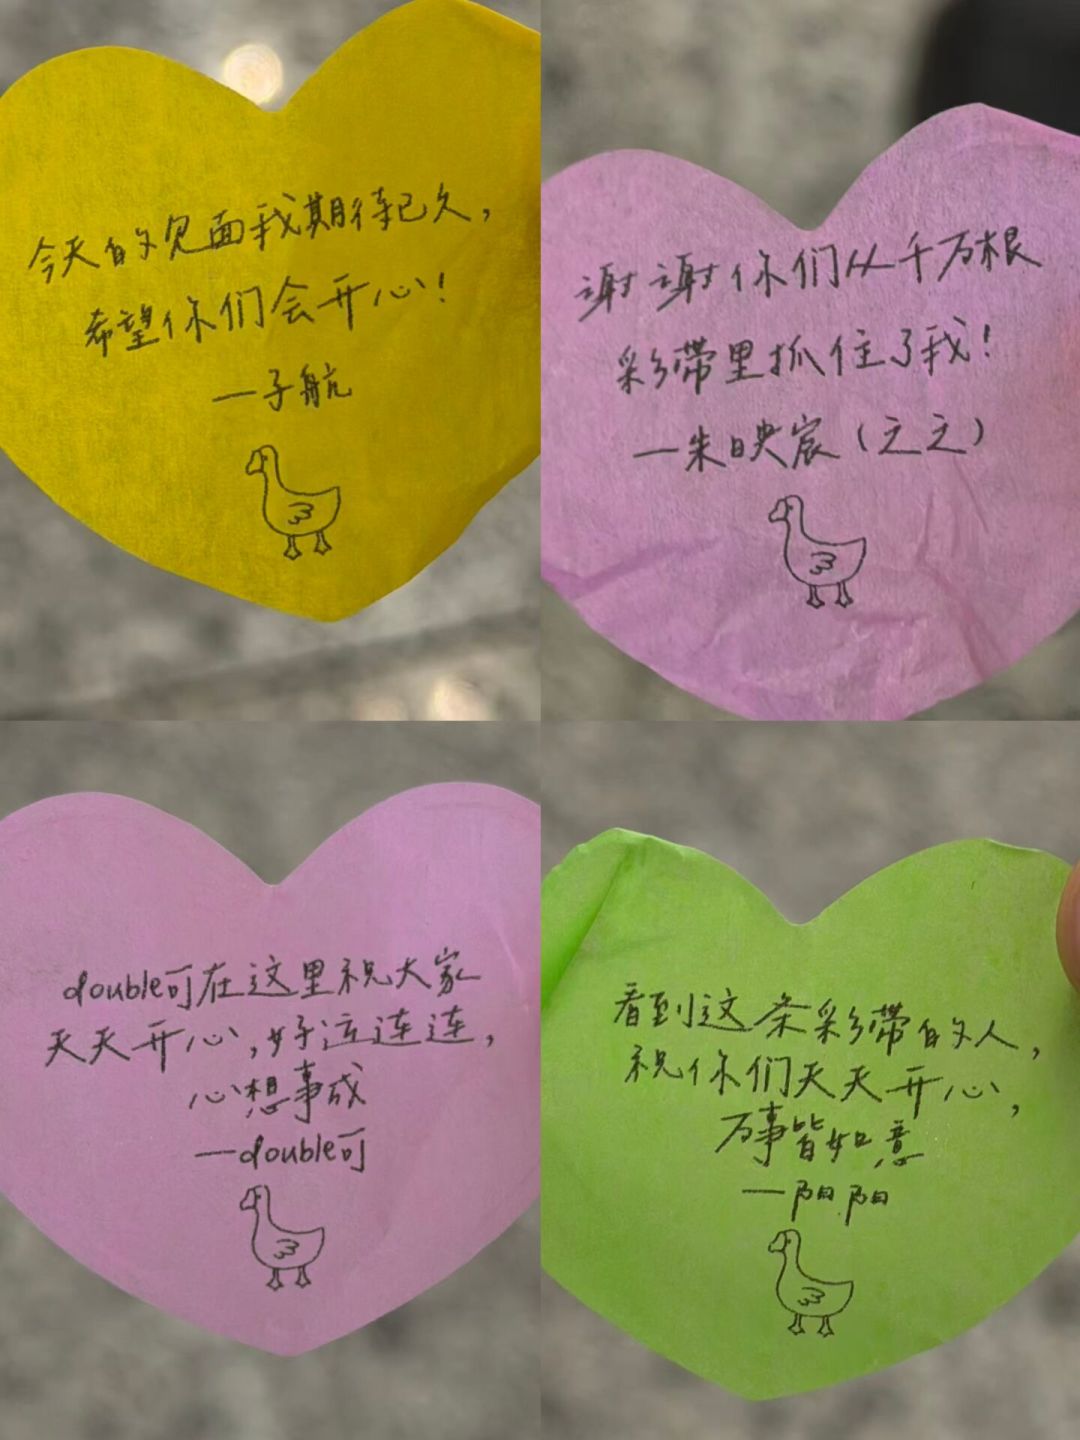 今天的见面我期待已久，
希望你们会开心！
—子航
谢谢你们从千万根
彩带里抓住了我！
—朱映宸（之之）
double可在这里祝大家
天天开心，好运连连，
心想事成
—double可
看到这条彩带的人，
祝你们天天开心，
万事皆如意
—阳阳